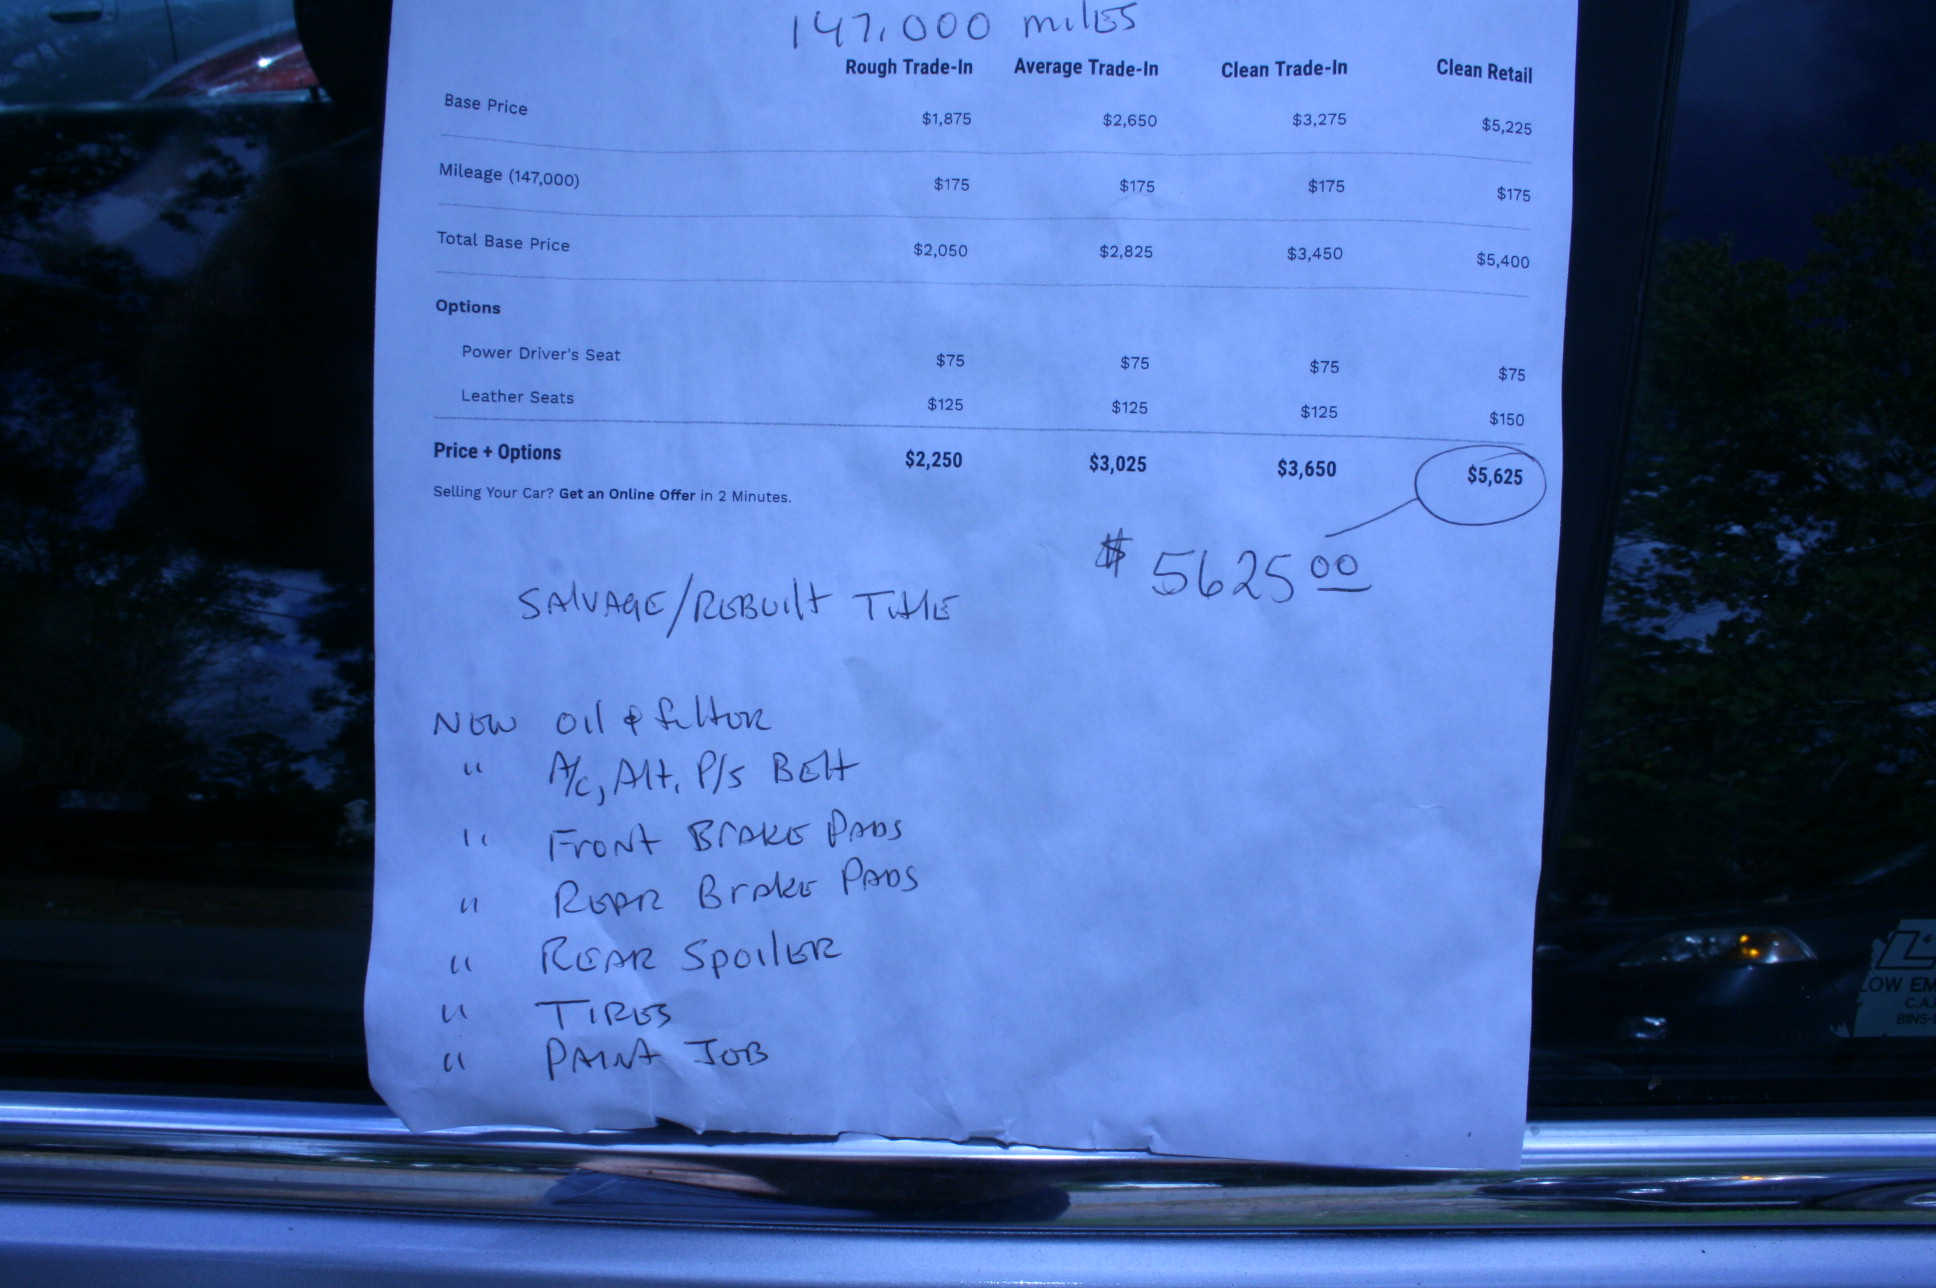 147,000 miles
Rough Trade-In Average Trade-In Clean Trade-In Clean Retail
Base Price $1,875 $2,650 $3,275 $5,225
Mileage (147,000) $175 $175 $175 $175
Total Base Price $2,050 $2,825 $3,450 $5,400
Options
Power Driver's Seat $75 $75 $75 $75
Leather Seats $125 $125 $125 $150
Price + Options $2,250 $3,025 $3,650 $5,625
Selling Your Car? Get an Online Offer in 2 Minutes.
$ 5625 00
SALVAGE/REBUILT TITLE
NEW OIL & filter
" A/C, Alt. P/S BELT
" FRONT BRAKE PADS
" REAR BRAKE PADS
" REAR SPOILER
" TIRES
" PAINT JOB
LOW EM
C.A.
BIN5-